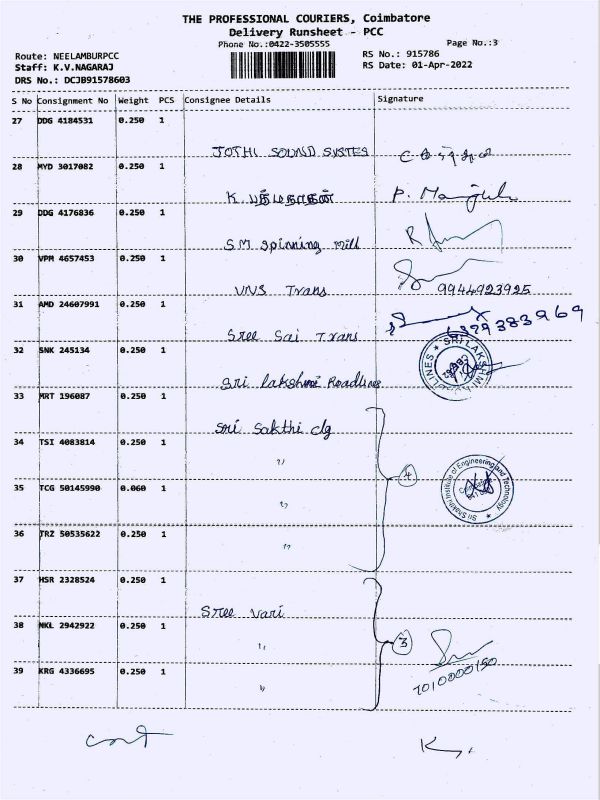 THE PROFESSIONAL COURIERS, Coimbatore
Delivery Runsheet - PCC
Phone No.:0422-3505555
Page No.:3
Route: NEELAMBURPCC
RS No.: 915786
Staff: K.V.NAGARAJ
RS Date: 01-Apr-2022
DRS No.: DCJB91578603
S No Consignment No Weight PCS Consignee Details Signature
27 DDG 4184531 0.250 1
JOTHI SOUND SYSTES
28 MYD 3017082 0.250 1
K. P. Manjula
29 DDG 4176836 0.250 1
SM Spinning Mill
30 VPM 4657453 0.250 1
VNS Trans 9944923925
31 AMD 24607991 0.250 1
Sree Sai Trans 6379383969
32 SNK 245134 0.250 1
Sri Lakshmi Roadlines
SRI LAKSHMI ROADLINES
33 MRT 196087 0.250 1
Sri Sakthi clg
34 TSI 4083814 0.250 1
" 4
35 TCG 50145990 0.060 1
"
Sri Shakthi Institute of Engineering and Technology
36 TRZ 50535622 0.250 1
"
37 HSR 2328524 0.250 1
Sree Vari
38 NKL 2942922 0.250 1
" 3
39 KRG 4336695 0.250 1
" 7010000150